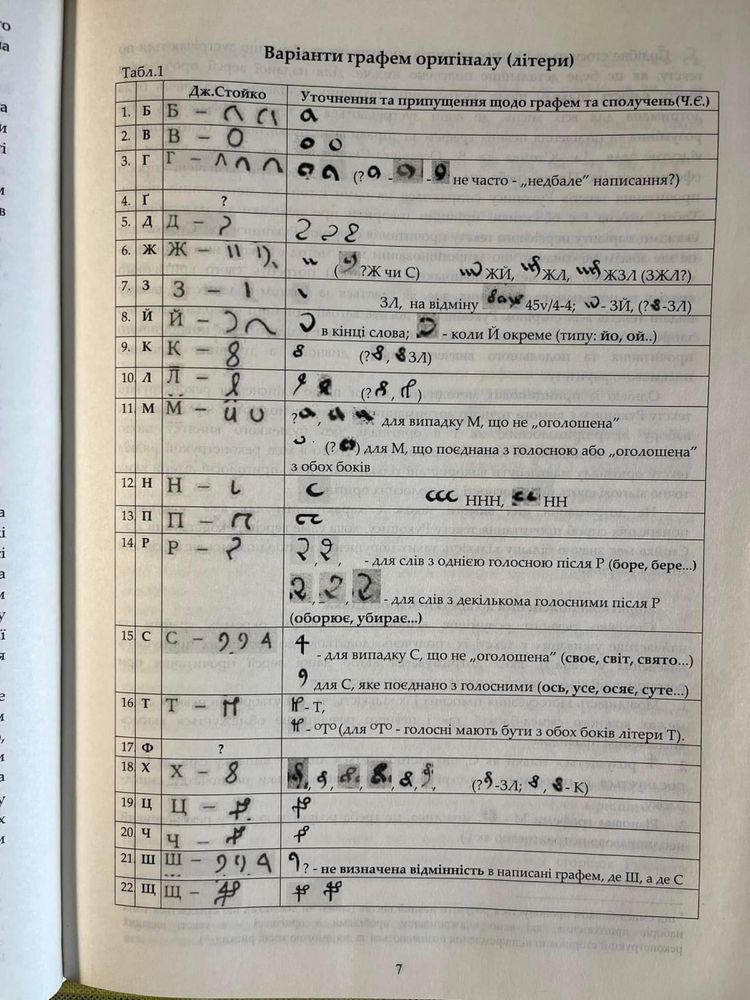 Варіанти графем оригіналу (літери)
Табл.1
Дж.Стойко Уточнення та припущення щодо графем та сполучень(Ч.Є.)
1. Б Б –
2. В В –
3. Г Г – (? - - не часто - „недбале” написання?)
4. Ґ ?
5. Д Д –
6. Ж Ж – ( ?Ж чи С) ЖЙ, ЖЛ, ЖЗЛ (ЗЖЛ?)
7. З З – ЗЛ, на відміну 45v/4-4; - ЗЙ, (? -ЗЛ)
8. Й Й – в кінці слова; - коли Й окреме (типу: йо, ой..)
9. К К – (? , ЗЛ)
10. Л Л – (? , )
11. М М – ? , , для випадку М, що не „оголошена”
(? ) для М, що поєднана з голосною або „оголошена”
з обох боків
12. Н Н – ННН, НН
13. П П –
14. Р Р – , , - для слів з однією голосною після Р (боре, бере...)
, , - для слів з декількома голосними після Р
(оборює, убирає...)
15. С С –
- для випадку С, що не „оголошена” (своє, світ, свято...)
для С, яке поєднано з голосними (ось, усе, осяє, суте...)
16. Т Т – - Т,
- ото (для ото - голосні мають бути з обох боків літери Т).
17. Ф ?
18. Х Х – , , , , , (? -ЗЛ; , - К)
19. Ц Ц –
20. Ч Ч –
21. Ш Ш – ? - не визначена відмінність в написані графем, де Ш, а де С
22. Щ Щ –
7